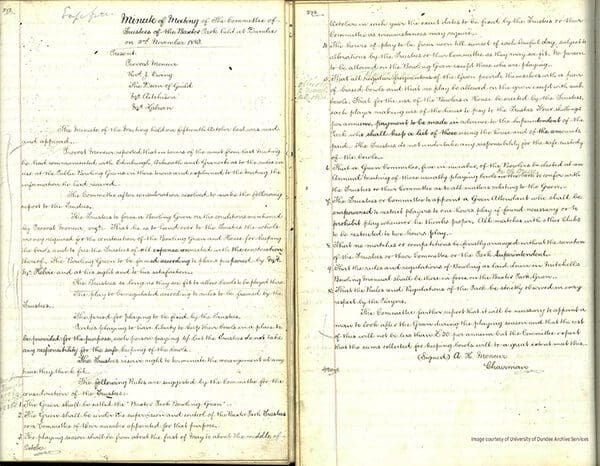 Minute of Meeting of the Committee of
Trustees of the Baxter Park held at Dundee
on 2nd November 1883.
Present
Provost Moncur
The Dean of Guild
The Minute of the Meeting held on fifteenth October last was read
and approved.
Provost Moncur reported that in terms of the remit from last Meeting
he had communicated with Edinburgh, Arbroath and as to the rules in
use at the Public Bowling Greens in these towns and explained to the Meeting the
information he had received.
The Committee after consideration resolved to make the following
report to the Trustees.
The Trustees to form a Bowling Green on the conditions mentioned
by Provost Moncur, That he is to hand over to the Trustees the whole
money required for the construction of the Bowling Green and House for keeping
the bowls and to free the Trustees of all expense connected with the construction
thereof. The Bowling Green to be formed according to plans prepared by
and at his sight and to his satisfaction.
The Trustees so long as they see fit to allow bowls to be played there
The play to be regulated according to rules to be framed by the
Trustees.
The period for playing to be fixed by the Trustees.
Parties playing to have liberty to keep their bowls in a place to
be provided for the purpose, each person paying but the Trustees do not take
any responsibility for the safe keeping of the bowls.
The Trustees reserve right to terminate the arrangement at any
time they think fit.
The following Rules are suggested by the Committee for the
consideration of the Trustees:
1 The Green shall be called the "Baxter Park Bowling Green"
2 The Green shall be under the supervision and control of the Baxter Park Trustees
or a Committee of their number appointed for that purpose.
3 The playing season shall be from about the first of May to about the middle of
October
October in each year the exact dates to be fixed by the Trustees or their
Committee as circumstances may require.
The hours of play to be from noon till sunset of each lawful day, subject to
alterations by the Trustees or their Committee as they may see fit. No person
to be allowed on the Bowling Green except those who are playing.
That all of the Green provide themselves with a pair
of bowls and that no play be allowed on the green except with such
bowls. That for the use of the Bowlers House to be erected by the Trustees,
each player making use of the House to pay to the Trustees Four shillings
per annum, payment to be made in advance to the Superintendent of the
Park who shall keep a list of those using the house and of the amounts
paid. The Trustees do not undertake any responsibility for the safe custody
of the bowls.
That a Green Committee, five in number, of the Bowlers be elected at an
Annual Meeting of those usually playing bowls to confer with
the Trustees or their Committee as to all matters relating to the Green.
7 The Trustees or Committee to appoint a Green Attendant who shall be
empowered to restrict players to one hours play if found necessary or to
prohibit play whenever he thinks proper. All matches with other Clubs
to be restricted to two hours play.
8 That no matches or competitions be finally arranged without the sanction
of the Trustees or their Committee or the Park Superintendent.
9 That the rules and regulations of Bowling as laid down in Mitchell's
Bowling Manual shall be those in force on the Baxter Park Green.
10 That the Rules and Regulations of the Park be strictly observed in every
respect by the Players.
The Committee further report that it will be necessary to appoint a
man to look after the Green during the playing season and that the cost
of this will not be less than £30 per annum but the Committee expect
that the sums collected for keeping bowls will to a great extent meet this.
(Signed) A. H. Moncur
Chairman
Image courtesy of University of Dundee Archive Services